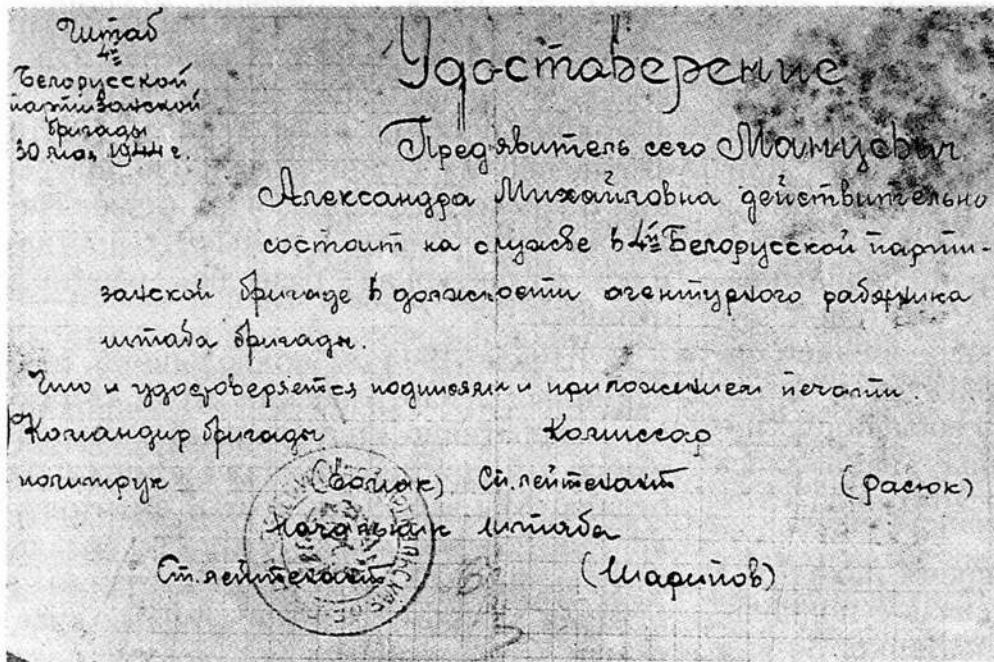 Штаб
4й
Белорусской
партизанской
бригады
30 мая 1944 г.
Удостаберение
Пред'явитель сего Манцевич
Александра Михайловна действительно
состоит на службе в 4й Белорусской парти-
занской бригаде в должности агентурного работника
штаба бригады.
Что и удостоверяется подписями и приложением печати.
Командир бригады Комиссар
политрук Ст. лейтенант (Расюк)
Начальник штаба
Ст. лейтенант (Шарипов)